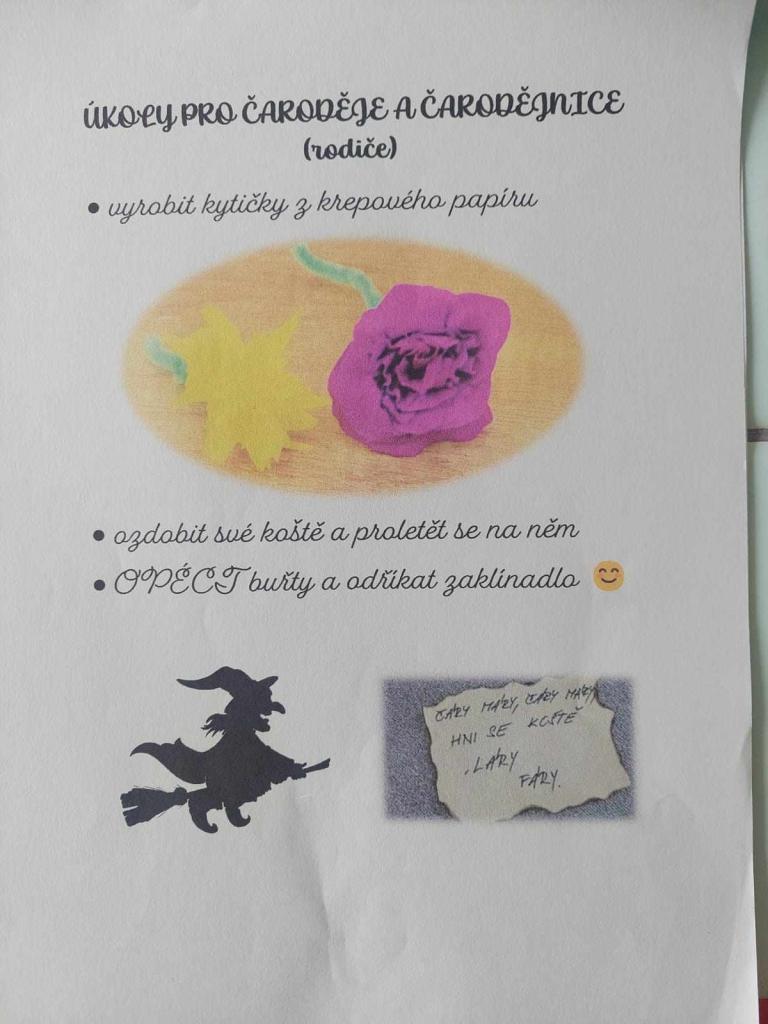 ÚKOLY PRO ČARODĚJE A ČARODĚJNICE
(rodiče)
• vyrobit kytičky z krepového papíru
• ozdobit své koště a proletět se na něm
• OPÉCT buřty a odříkat zaklínadlo 😊
ČÁRY MÁRY, ČÁRY MÁRY,
HNI SE KOŠTĚ
LÁRY
FÁRY.